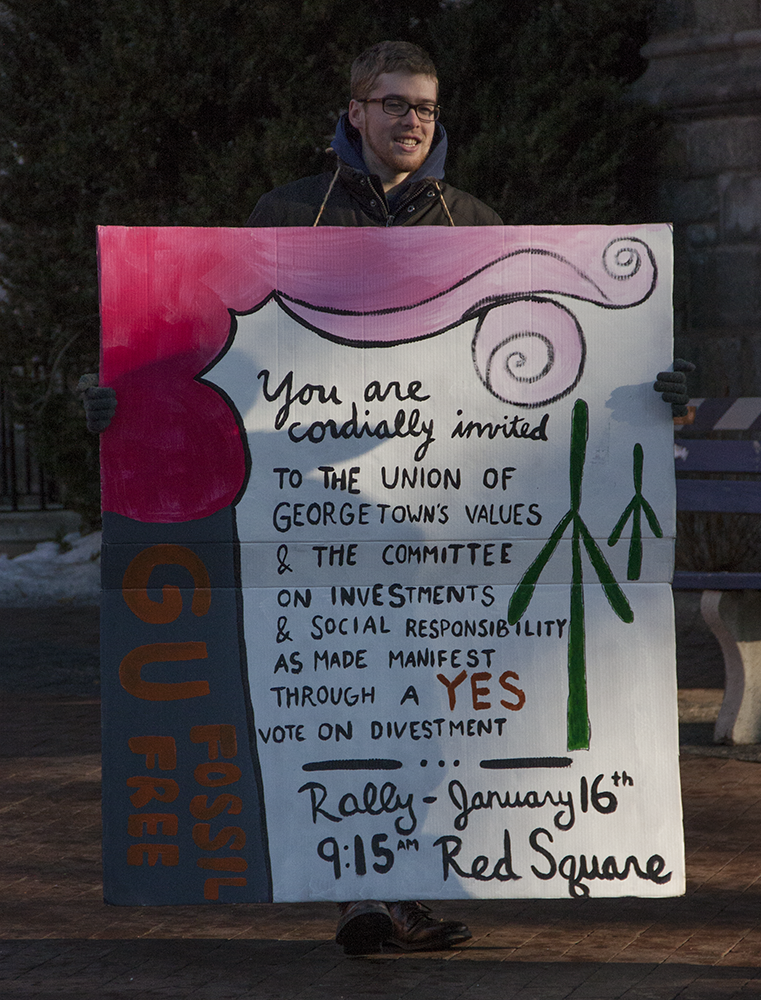 You are
cordially invited
TO THE UNION OF
GEORGETOWN'S VALUES
& THE COMMITTEE
ON INVESTMENTS
& SOCIAL RESPONSIBILITY
AS MADE MANIFEST
THROUGH A YES
VOTE ON DIVESTMENT
Rally - January 16th
9:15 AM Red Square
GU
FOSSIL
FREE